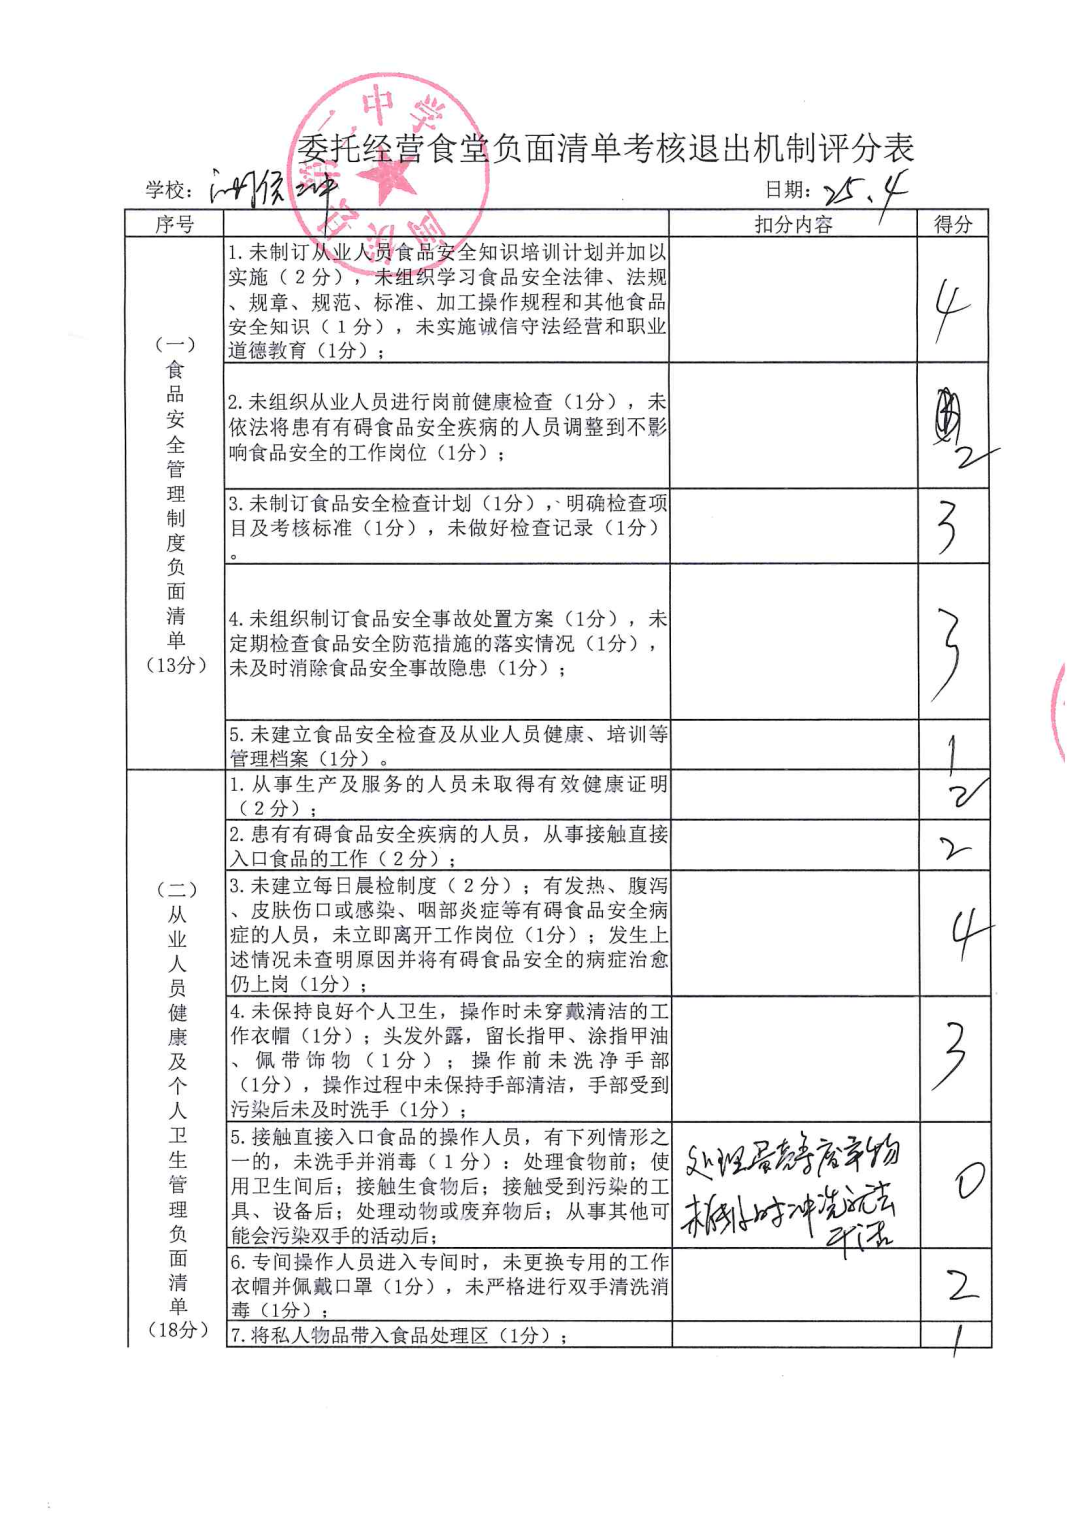 委托经营食堂负面清单考核退出机制评分表
学校：闽侯二中 日期：25.4
序号 扣分内容 得分
（一）食品安全管理制度负面清单（13分）
1.未制订从业人员食品安全知识培训计划并加以
实施（2分），未组织学习食品安全法律、法规
、规章、规范、标准、加工操作规程和其他食品
安全知识（1分），未实施诚信守法经营和职业
道德教育（1分）；
4
2.未组织从业人员进行岗前健康检查（1分），未
依法将患有有碍食品安全疾病的人员调整到不影
响食品安全的工作岗位（1分）；
2
3.未制订食品安全检查计划（1分），、明确检查项
目及考核标准（1分），未做好检查记录（1分）
。
3
4.未组织制订食品安全事故处置方案（1分），未
定期检查食品安全防范措施的落实情况（1分），
未及时消除食品安全事故隐患（1分）；
3
5.未建立食品安全检查及从业人员健康、培训等
管理档案（1分）。
1
（二）从业人员健康及个人卫生管理负面清单（18分）
1.从事生产及服务的人员未取得有效健康证明
（2分）；
2
2.患有有碍食品安全疾病的人员，从事接触直接
入口食品的工作（2分）；
2
3.未建立每日晨检制度（2分）；有发热、腹泻
、皮肤伤口或感染、咽部炎症等有碍食品安全病
症的人员，未立即离开工作岗位（1分）；发生上
述情况未查明原因并将有碍食品安全的病症治愈
仍上岗（1分）；
4
4.未保持良好个人卫生，操作时未穿戴清洁的工
作衣帽（1分）；头发外露，留长指甲、涂指甲油
、佩带饰物（1分）；操作前未洗净手部
（1分），操作过程中未保持手部清洁，手部受到
污染后未及时洗手（1分）；
3
5.接触直接入口食品的操作人员，有下列情形之
一的，未洗手并消毒（1分）：处理食物前；使
用卫生间后；接触生食物后；接触受到污染的工
具、设备后；处理动物或废弃物后；从事其他可
能会污染双手的活动后；
处理蛋壳等废弃物
未及时冲洗
干净
0
6.专间操作人员进入专间时，未更换专用的工作
衣帽并佩戴口罩（1分），未严格进行双手清洗消
毒（1分）；
2
7.将私人物品带入食品处理区（1分）；
1